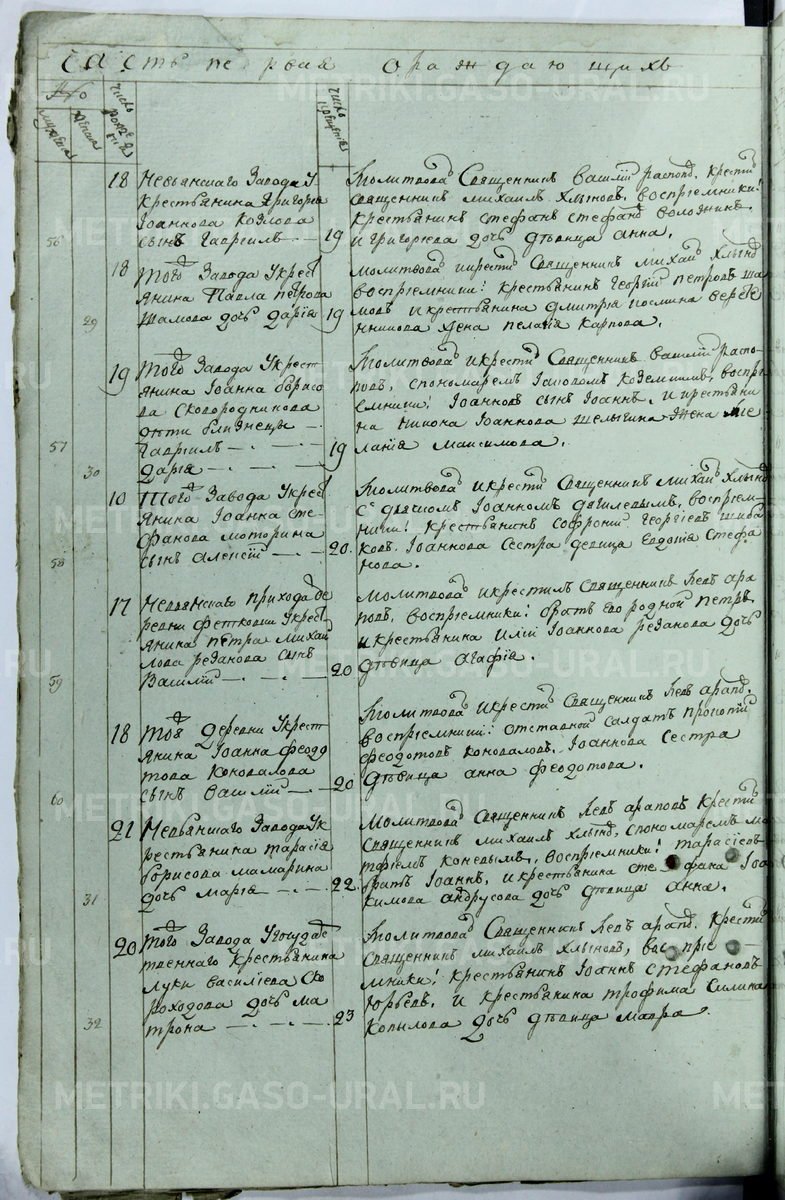 Часть первая о раждающихъ
No
мужеска
женска
число рожденiя
число крещенiя
18 Невьянскаго Завода у
крестьянина Григорья
Iоаннова Козлова
56 сынъ Гаврiилъ
Молитвова Священникъ Василiй распоп. крести
Священникъ Михаилъ Хлыновъ. воспрiемники:
крестьянинъ Стефанъ Стефанов Воложнинъ
19 и Григорьева дочь дѣвица Анна.
18 того Завода у крест
янина Павла Петрова
29 Шамова дочь Дарiя
молитвова и крести Священникъ Михаил Хлынов
воспрiемники: крестьянинъ Георгiй Петровъ Ша
19 мовъ и крестьянина Дмитрiя
жена Пелагiя Карпова.
19 того Завода у крест
янина Iоанна Борисо
ва Сковородникова
дѣти близнецы
57 Гаврiилъ
30 Дарiя
Молитвова и крести Священникъ Василiй распо
повъ, с пономаремъ воспрi
емники: Iоанновъ сынъ Iоаннъ. и крестьяни
на Никона Iоаннова жена Ме
19 ланiя Максимова.
10 того Завода у крест
янина Iоанна Сте
фанова Моторина
58 сынъ Алексiй
Молитвова и крести Священникъ Михаил Хлынов
с дьячкомъ Iоанномъ воспрiем
ники: крестьянинъ Софронiй Георгiевъ Шиба
20. ковъ. Iоаннова Сестра девица Евдокiя Стефа
нова.
17 Невьянскаго прихода де
ревни Фетковки у крест
янина Петра Михай
лова Резанова сынъ
59 Василiй
Молитвова и крестилъ Священникъ Левъ Ара
повъ, воспрiемники: братъ Его родной Петръ
и крестьянина Илiи Iоаннова Резанова дочь
20 дѣвица Агафiя.
18 той деревни у крест
янина Iоанна Феодо
това Коновалова
60 сынъ Василiй
Молитвова и крести Священникъ Левъ Арапов.
воспрiемники: отставной Салдатъ Прокопiй
Феодотовъ Коноваловъ. Iоаннова Сестра
20 дѣвица Анна Феодотова.
21 Невьянскаго Завода у к
рестьянина Тарасiя
Борисова Мамарина
31 дочь Марiя
Молитвова Священникъ Левъ Араповъ крести
Священникъ Михаилъ Хлынов, с пономаремъ Ма
тфiемъ Коневымъ, воспрiемники: Тарасiевъ
братъ Iоаннъ, и крестьянина Стефана Iоа
22. кимова Андрусова дочь дѣвица Анна.
20 того Завода у государс
твеннаго крестьянина
Луки Василiева Ско
роходова дочь Ма
32 трона
Молитвова Священникъ Левъ Арапов. крести
Священникъ Михаилъ Хлыновъ, воспрiе
мники: крестьянинъ Iоаннъ Стефановъ
Юрьевъ. и крестьянина Трофима Силина
23 Копылова дочь дѣвица Мавра.
METRIKI.GASO-URAL.RU